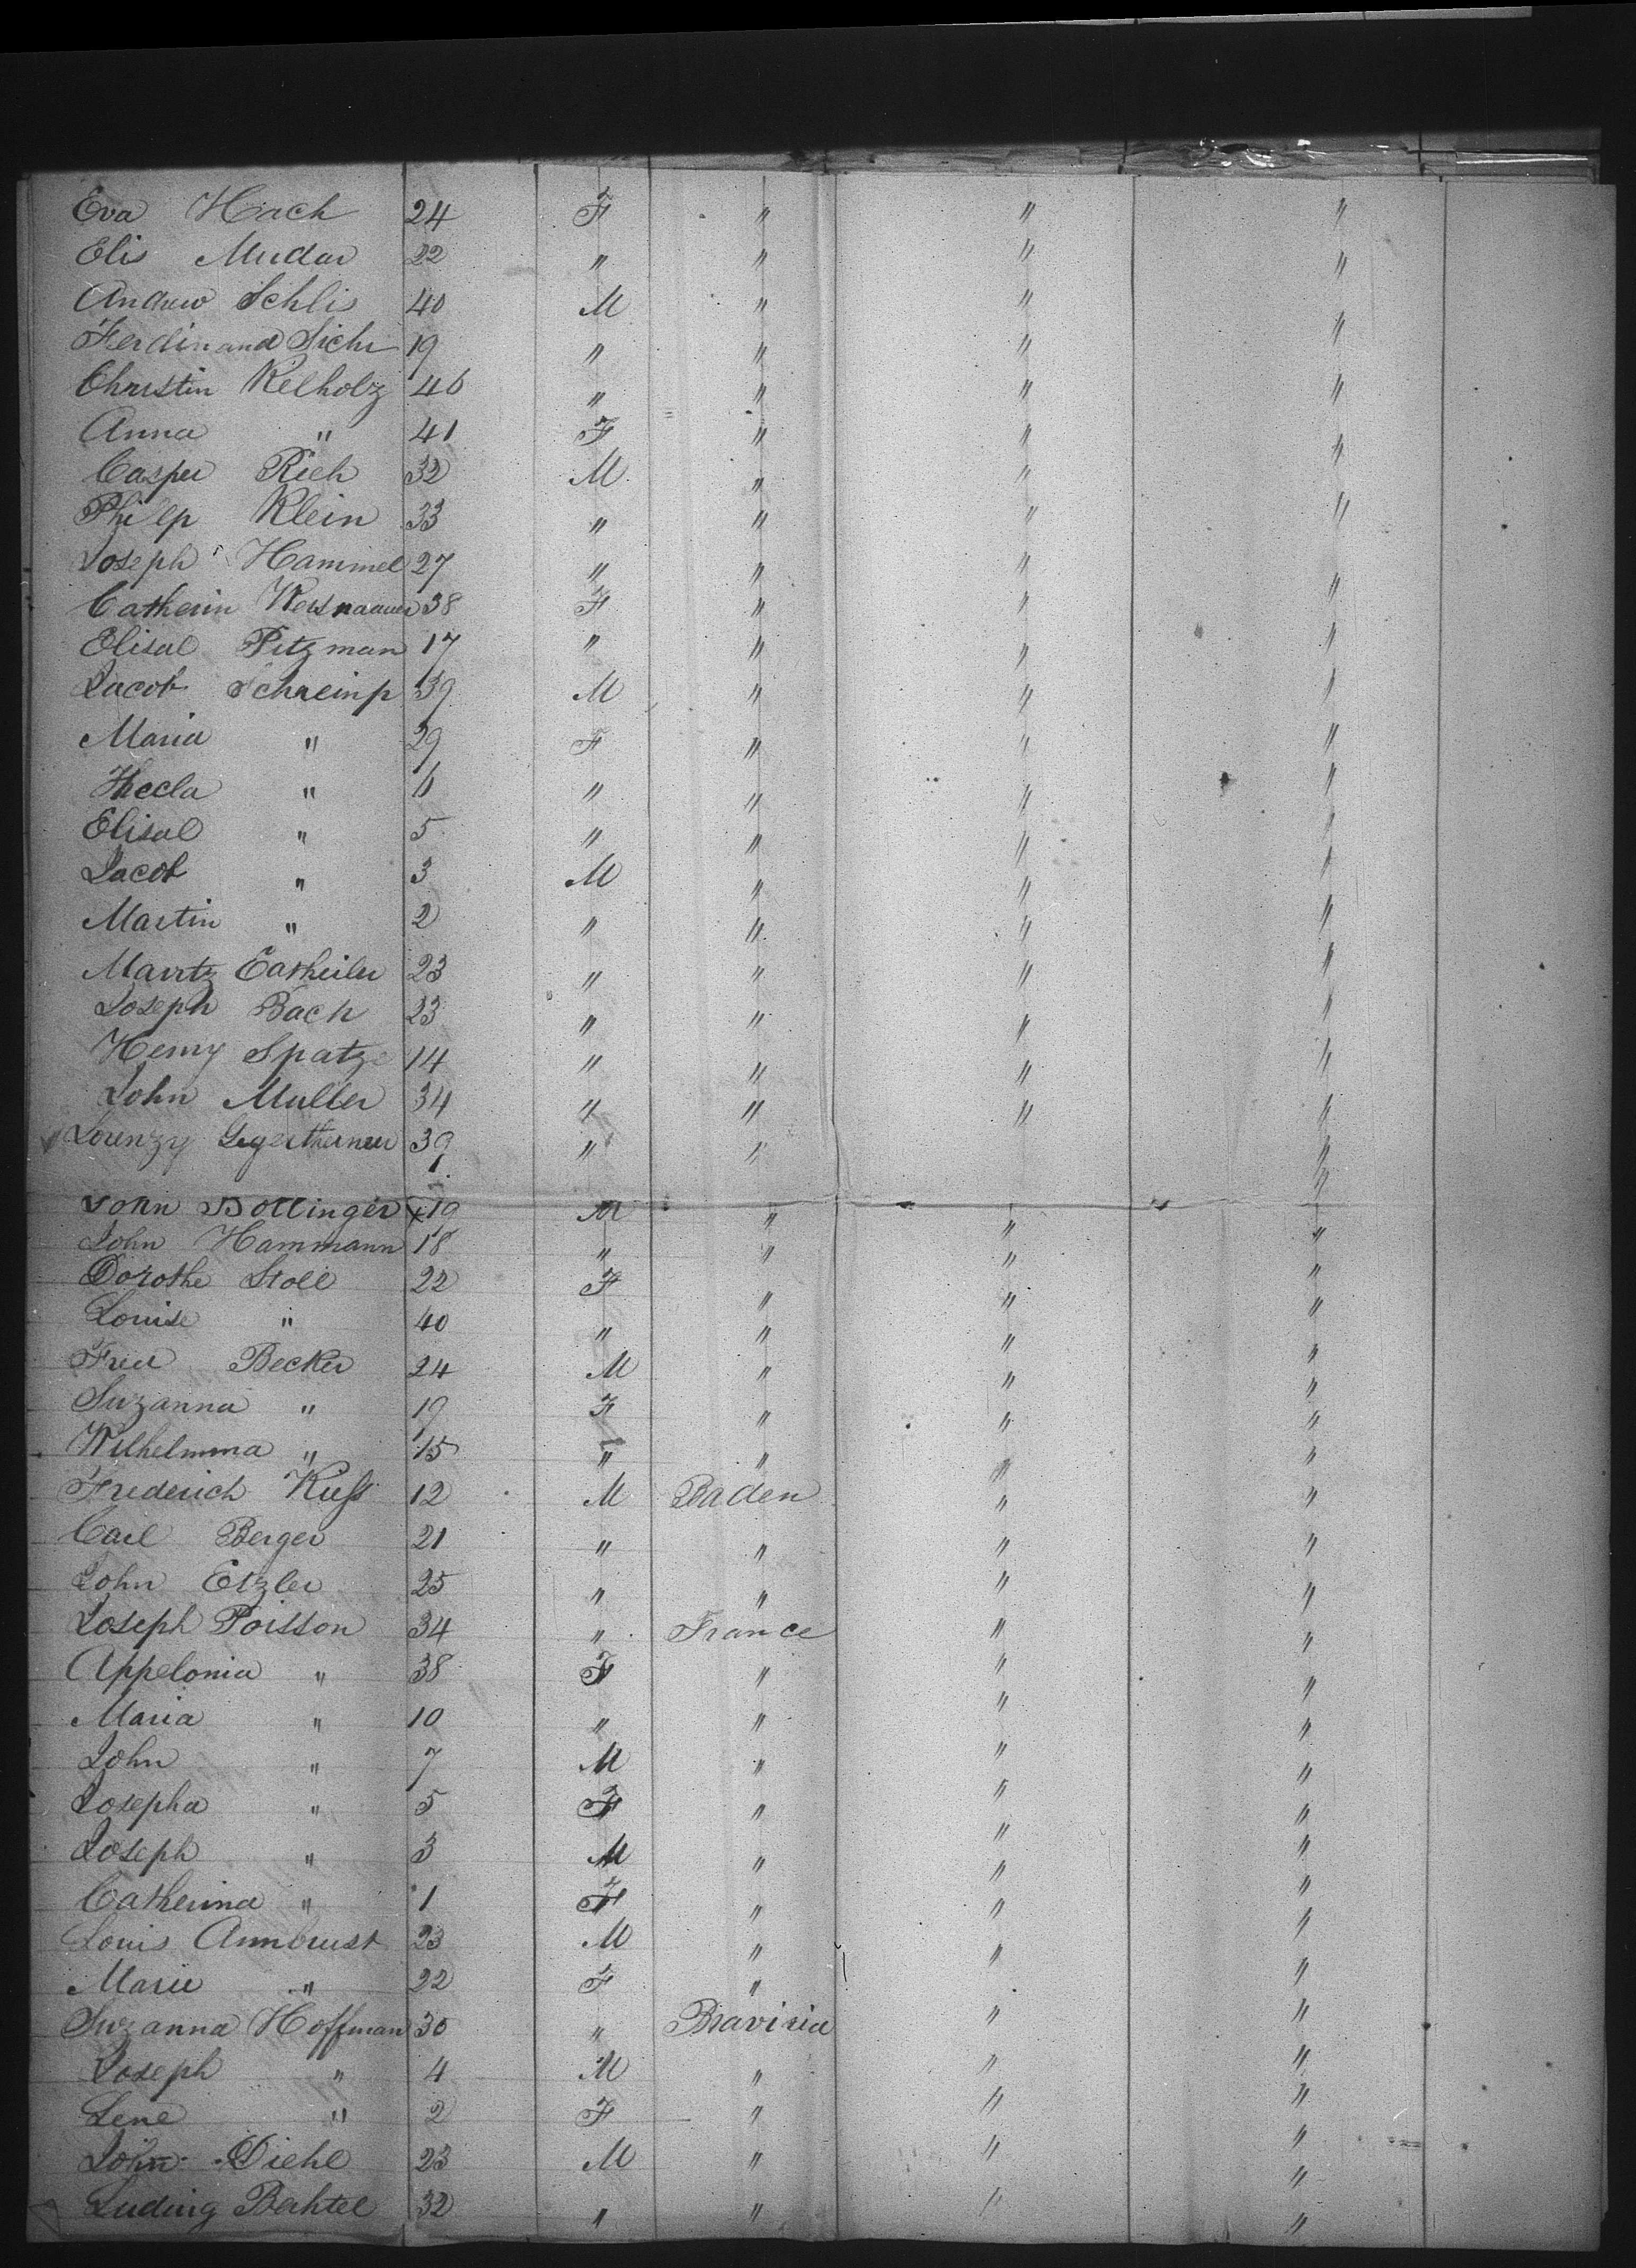 Eva Hach 24 F " " "
Elis Mudar 22 " " " "
Andrew Schlis 40 M " " "
Ferdinand Sichr 19 " " " "
Christin Kelholz 46 " " " "
Anna " 41 F " " "
Casper Rich 32 M " " "
Philip Klein 33 " " " "
Joseph Hammel 27 " " " "
Catherin 38 F " " "
Elisal Pitzman 17 " " " "
Jacob Schreinp 39 M " " "
Maria " 29 F " " "
Thecla " 6 " " " "
Elisal " 5 " " " "
Jacob " 3 M " " "
Martin " 2 " " " "
Maritz 23 " " " "
Joseph Bach 23 " " " "
Henry Spatz 14 " " " "
John Muller 34 " " " "
Lorenzy 39 " " " "
John Bollinger 19 M " " "
John Hammann 18 " " " "
Dorothe Stoll 22 F " " "
Louise " 40 " " " "
Fred Becker 24 M " " "
Suzanna " 19 F " " "
Wilhelmma " 15 " " " "
Frederich Kuss 12 M Baden " "
Carl Berger 21 " " " "
John Etzler 25 " " " "
Joseph Poisson 34 " France " "
Appelonia " 38 F " " "
Maria " 10 " " " "
John " 7 M " " "
Josepha " 5 F " " "
Joseph " 3 M " " "
Catherina " 1 F " " "
Louis Armbrust 23 M " " "
Marie " 22 F " "
Suzanna Hoffman 30 " Braviria " "
Joseph " 4 M " " "
Lene " 2 F " " "
John Diehl 23 M " " "
Luding Bechtel 32 " " " "